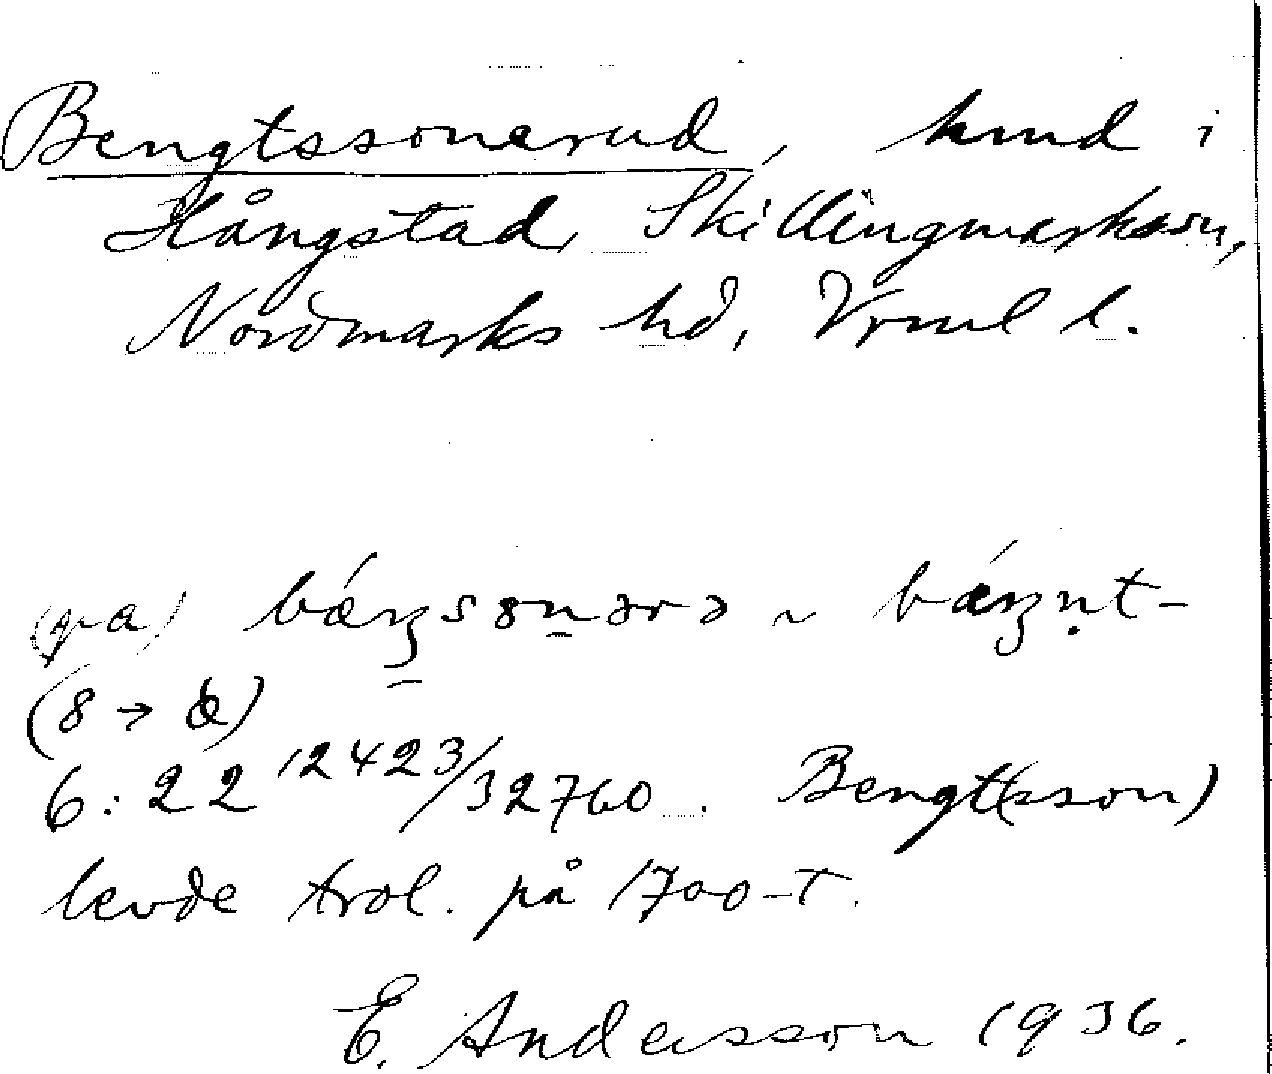 Bengtssonerud, hmd i
Hångstad, Skillingmarks sn,
Nordmarks hd, Vrml l.
(på) bǽŋsȣnərə ~ bǽŋnt-
(ȣ → )
6:22 12423/32760. Bengt(sson)
levde trol. på 1700-t.
E. Andersson 1936.